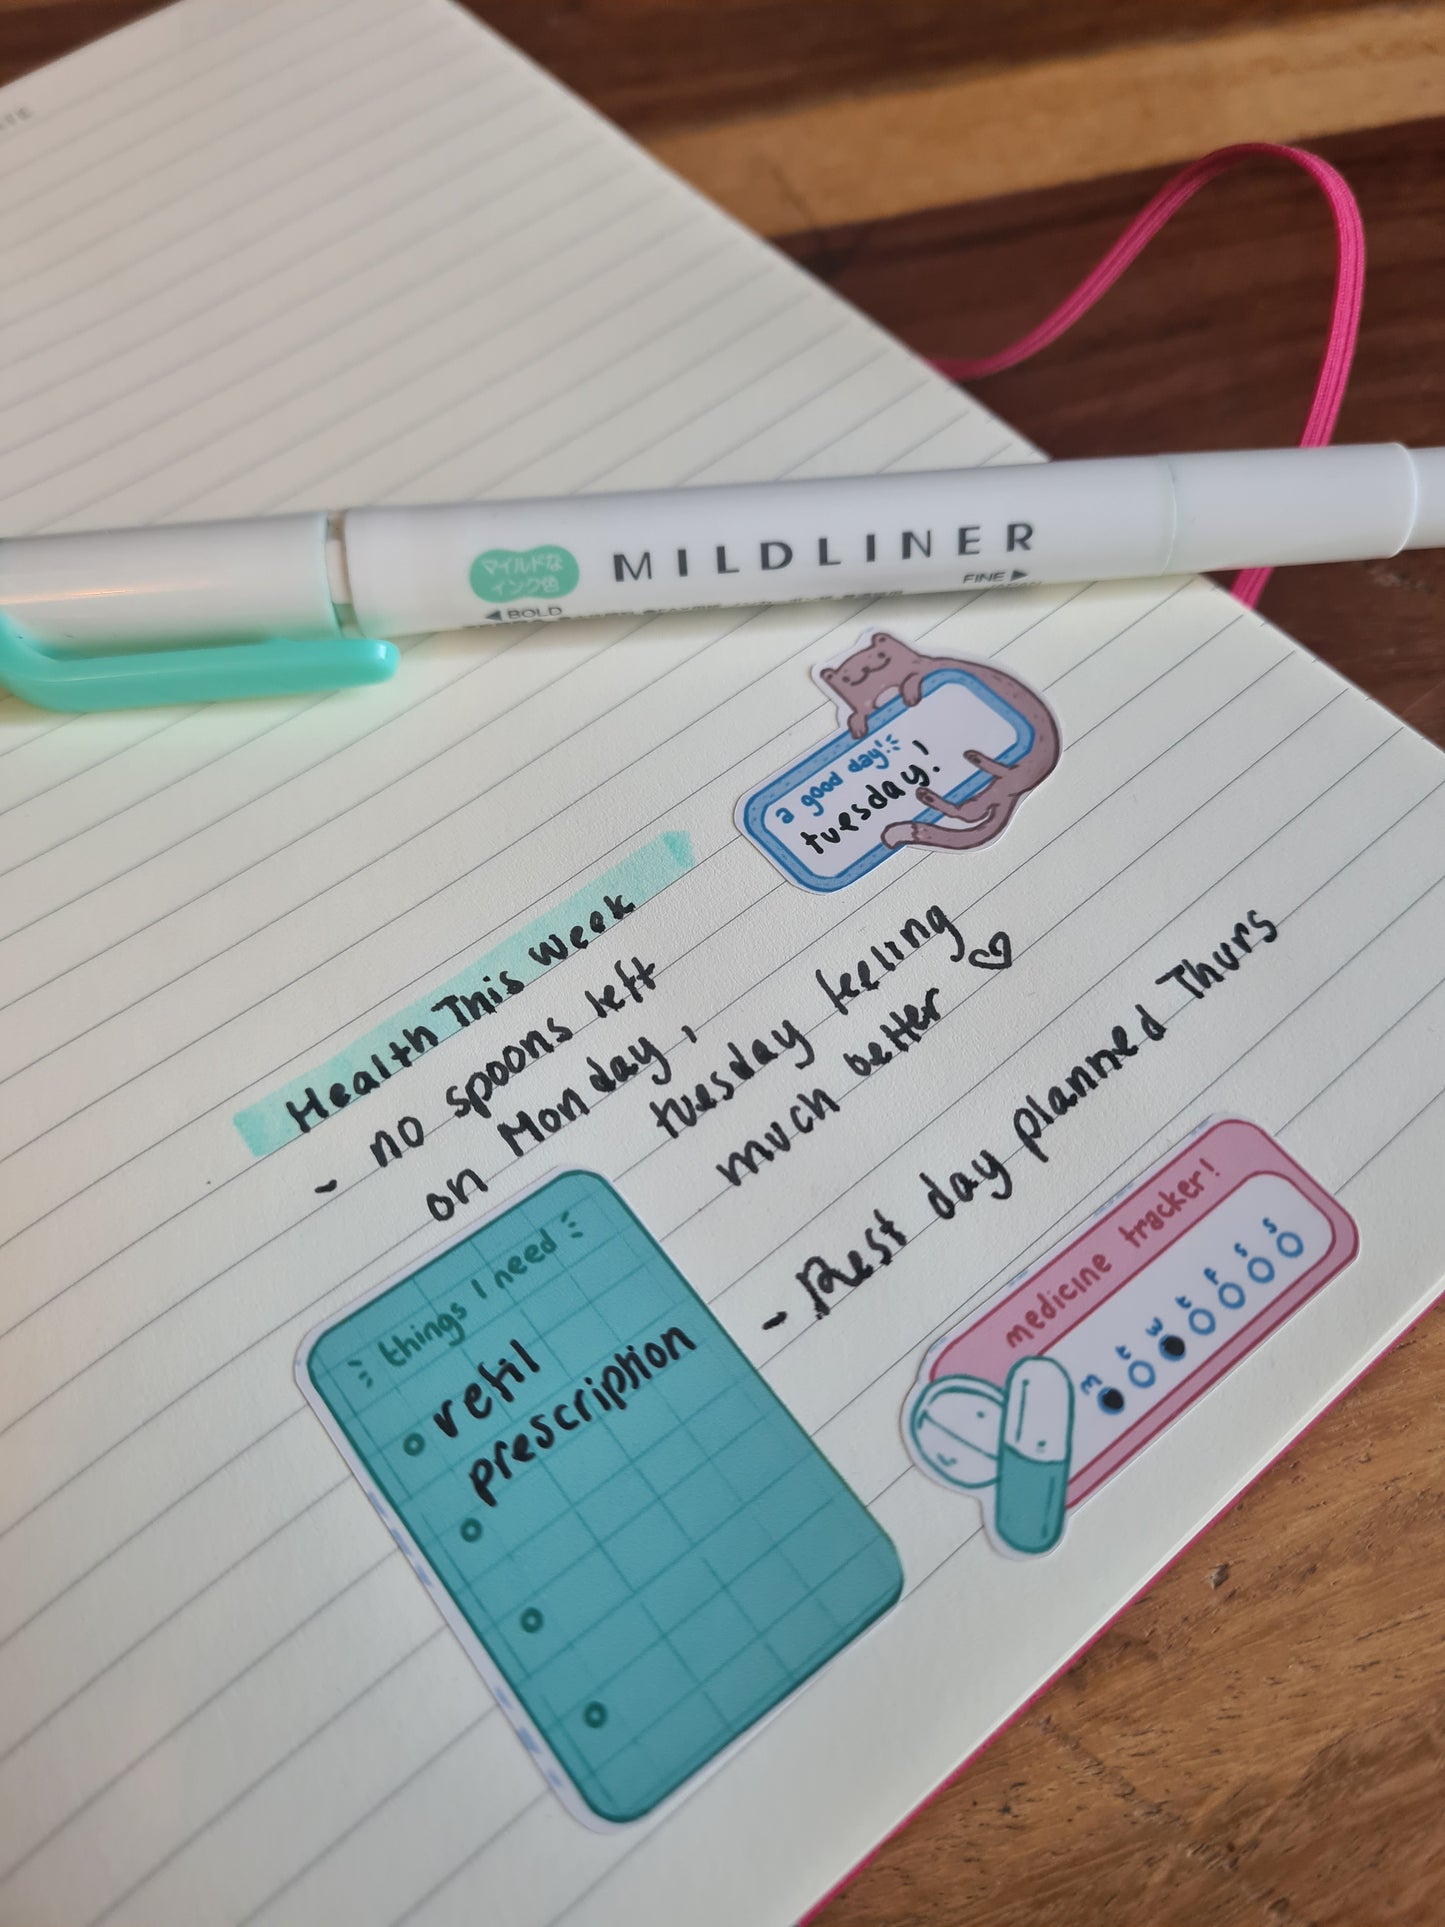 マイルドな
インク色
MILDLINER
◀ BOLD
FINE ▶
a good day!
tuesday!
Health This Week
- no spoons left
on Monday,
tuesday feeling
much better ♡
- Rest day planned Thurs
things I need
refil
prescription
medicine tracker!
m t w t f s s